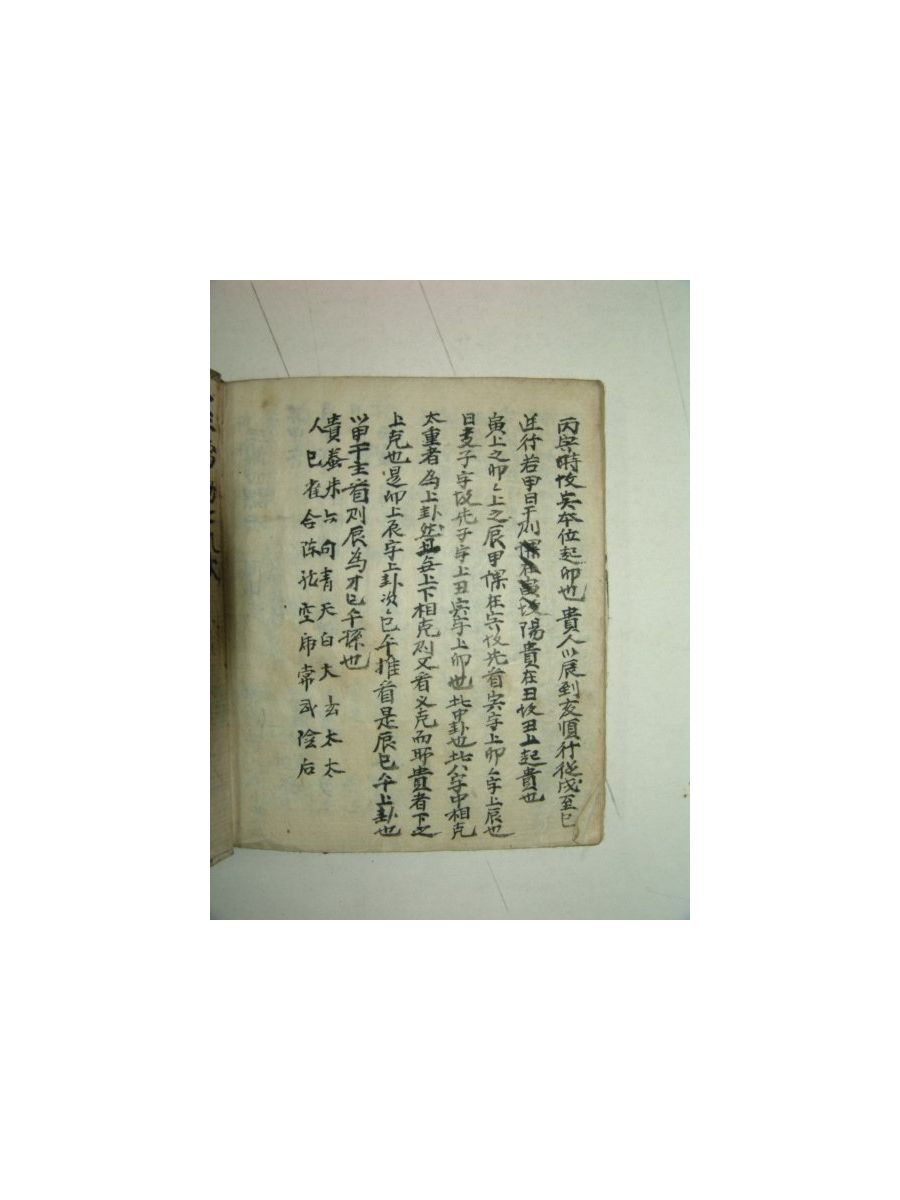 丙寅時故寅本位起卯也貴人以辰到亥順行從戌至巳
逆行若甲日干則課在寅故陽貴在丑故丑上起貴也
寅上之卯〻上之辰甲課在寅故先看寅字上卯〻字上辰也
日支子字故先子字上丑寅字上卯也此甲卦也此八字中相克
太重者為上卦然且每上下相克則又看又克而耶貴者下之
上克也是卯上辰字上卦次〻巳午推看是辰巳午上卦也
以甲干主看則辰為才巳午孫也
貴 螣 朱 六 句 青 天 白 太 玄 太 太
人 巳 雀 合 陈 龍 空 帍 常 武 陰 后